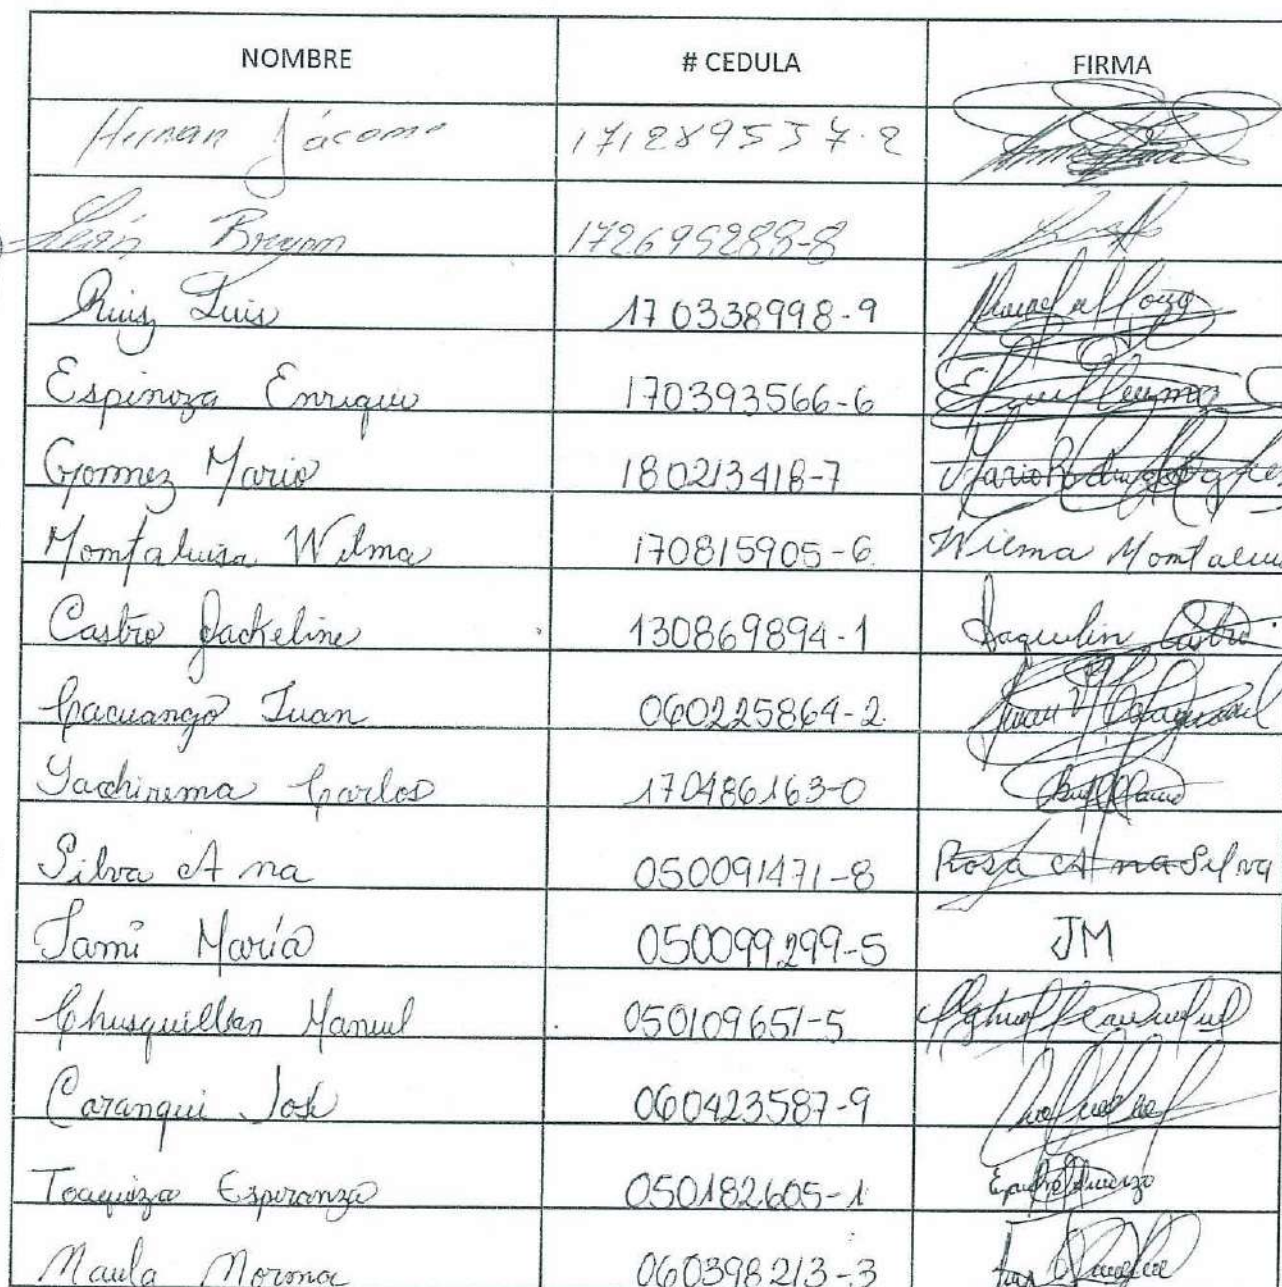 NOMBRE # CEDULA FIRMA
Hernan Jácome 171289537-2
León Brayan 172695288-8
Ruiz Luis 170338998-9
Espinoza Enrique 170393566-6
Gomez Mario 180213418-7 Mario Rodrigo
Montaluisa Wilma 170815905-6 Wilma Montaluis
Castro Jackeline 130869894-1 Jaquelin Castro
Cacuango Juan 060225864-2 Juan
Yachirema Carlos 170486163-0
Silva Ana 050091471-8 Rosa Ana Silva
Jami María 050099299-5 JM
Chusquillan Manuel 050109651-5
Caranqui José 060423587-9
Toaquiza Esperanza 050182605-1
Naula Norma 060398213-3